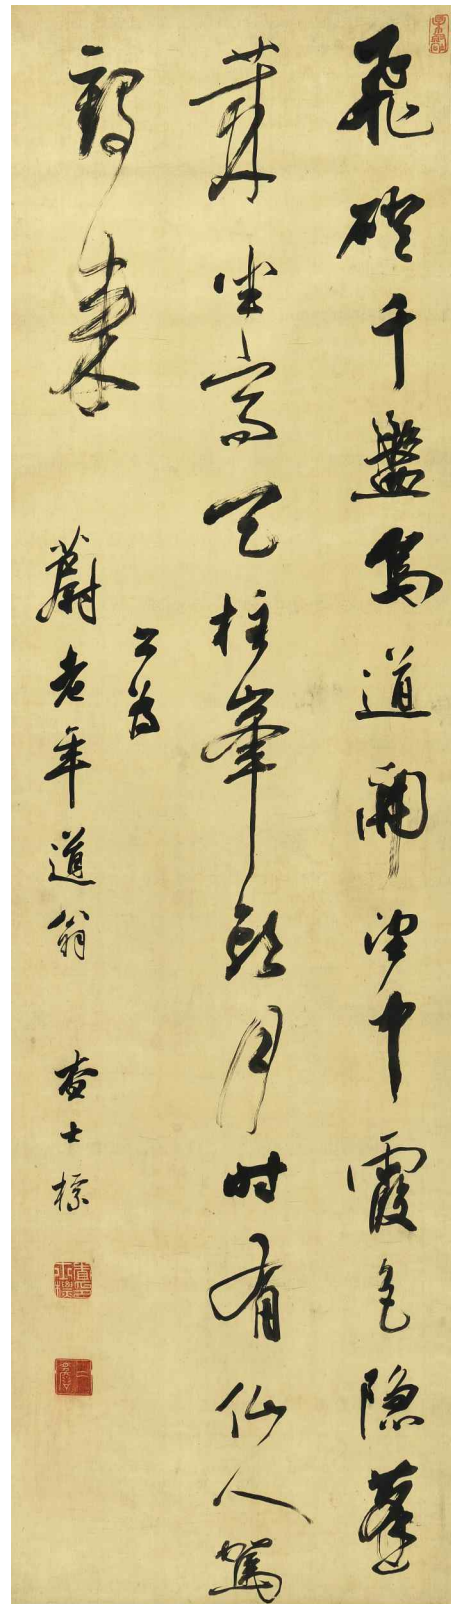 飛磴千盤鳥道開望中霞色隱蓬
萊坐天柱峯頭月時有仙人駕
鶴來
書為
蔚老年道翁
查士標